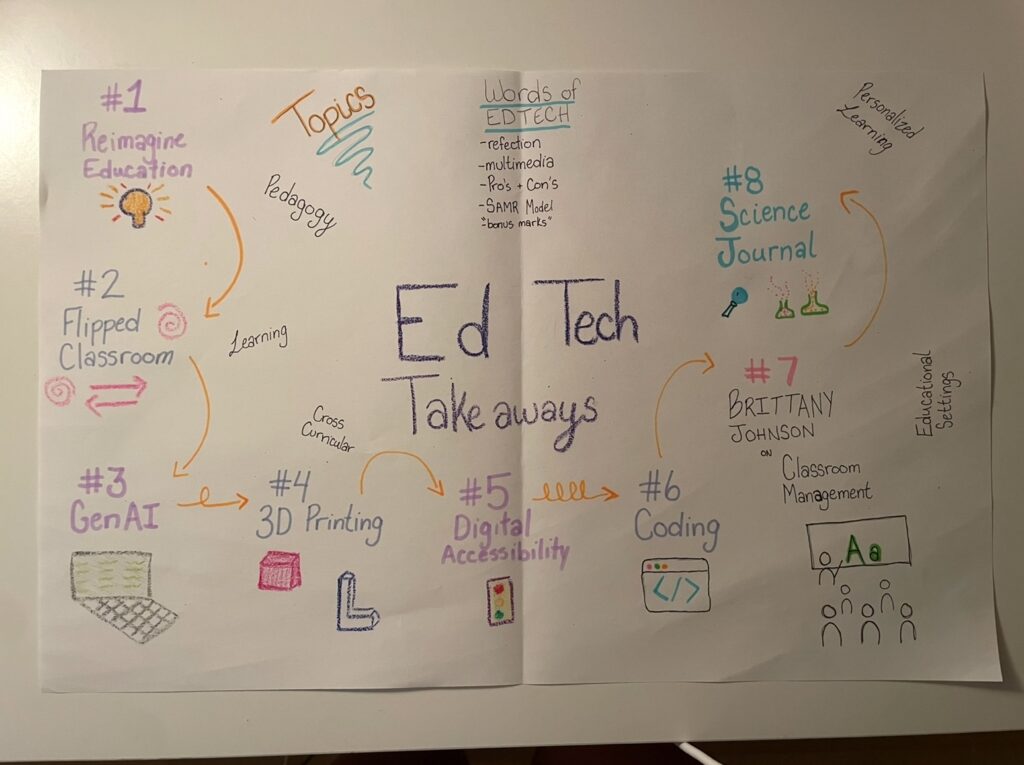 #1
Reimagine
Education
Topics
Words of
EDTECH
-refection
-multimedia
-Pro's + Con's
-SAMR Model
"bonus marks"
Personalized
Learning
Pedagogy
#2
Flipped
Classroom
Learning
Ed Tech
Takeaways
#8
Science
Journal
Cross
Curricular
#3
GenAI
#4
3D Printing
#5
Digital
Accessibility
#6
Coding
</>
#7
BRITTANY
JOHNSON
ON
Classroom
Management
Aa
Educational
Settings